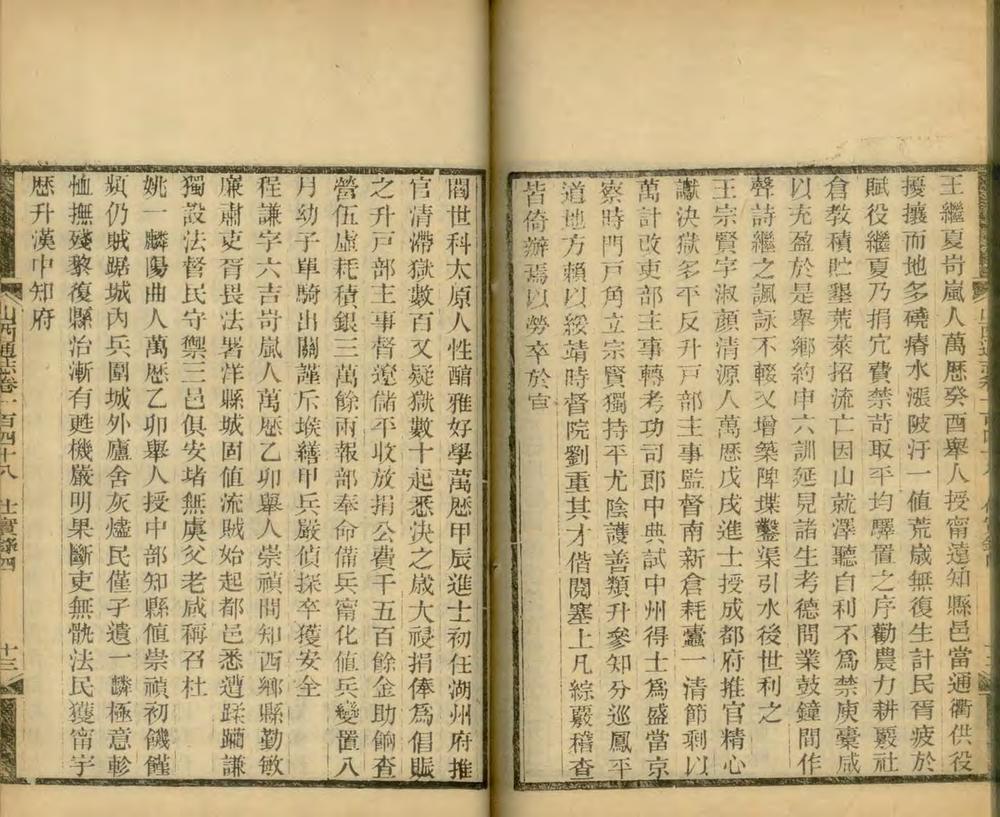 王繼夏岢嵐人萬歴癸酉舉人授甯遠知縣邑當通衢供役
擾攘而地多磽瘠水漲陂汙一値荒歲無復生計民胥疲於
賦役繼夏乃捐宂費禁苛取平均驛置之序勸農力耕覈社
倉教積貯墾荒萊招流亡因山就澤聽自利不爲禁庾稾咸
以充盈於是舉鄉約申六訓延見諸生考德問業鼓鐘間作
聲詩繼之諷詠不輟又增築陴堞鑿渠引水後世利之
王宗賢字淑顔清源人萬歴戊戌進士授成都府推官精心
讞決獄多平反升戸部主事監督南新倉耗蠹一清節剩以
萬計改吏部主事轉考功司郎中典試中州得士爲盛當京
察時門戸角立宗賢獨持平尤陰護善類升參知分巡鳳平
道地方賴以綏靖時督院劉重其才偕閱塞上凡綜覈稽查
皆倚辦焉以勞卒於官
閻世科太原人性醕雅好學萬歴甲辰進士初任湖州府推
官清滯獄數百又疑獄數十起悉決之歲大祲捐俸爲倡賑
之升戸部主事督遼儲平收放捐公費千五百餘金助餉查
營伍虛耗積銀三萬餘兩報部奉命備兵甯化値兵變置八
月幼子單騎出關謹斥堠繕甲兵嚴偵探卒獲安全
程謙字六吉岢嵐人萬歴乙卯舉人崇禎間知西鄉縣勤敏
廉肅吏胥畏法署洋縣城固値流賊始起都邑悉遭蹂躪謙
獨設法督民守禦三邑俱安堵無虞父老咸稱召杜
姚一麟陽曲人萬歴乙卯舉人授中部知縣値崇禎初饑饉
頻仍賊踞城內兵圍城外廬舍灰燼民僅孑遺一麟極意軫
恤撫殘黎復縣治漸有甦機嚴明果斷吏無骫法民獲甯宇
歴升漢中知府
山西通志卷一百四十八 仕實錄四 十三